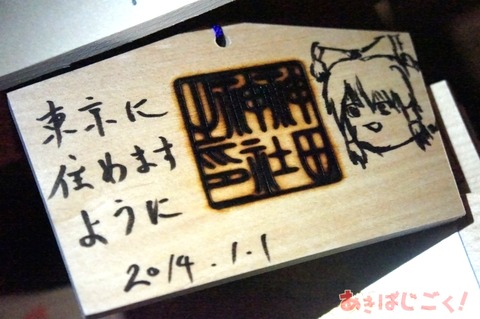 東京に
住めます
ように
2014.1.1
神田
神社
あきばじごく!